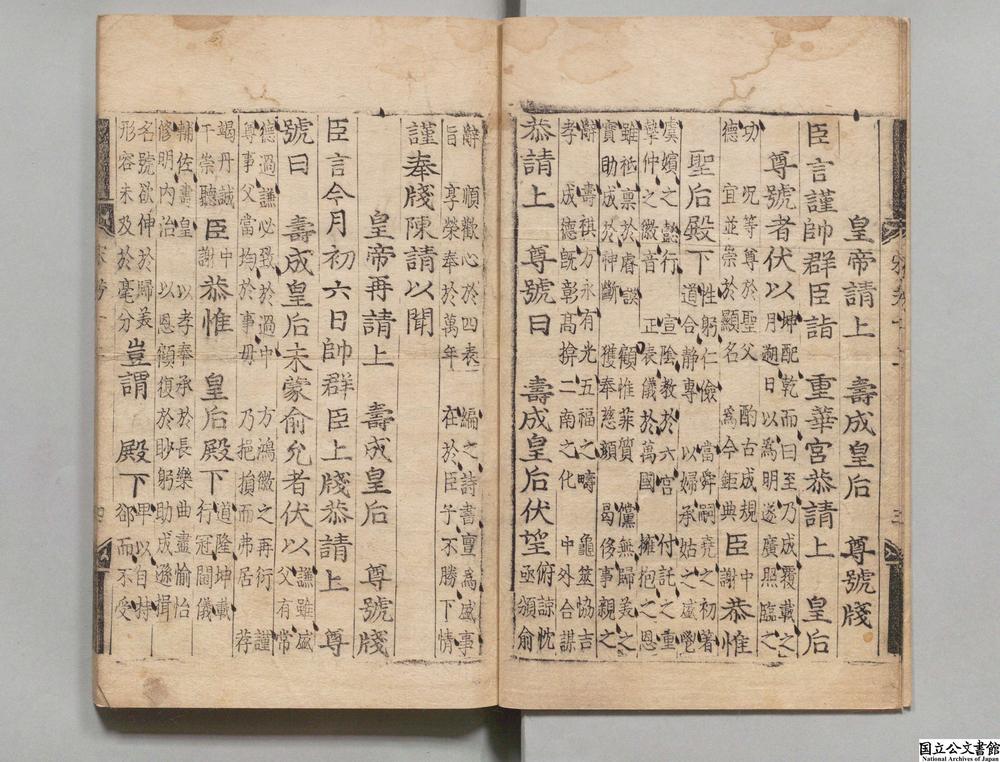 皇帝請上　壽成皇后　尊號牋
臣言謹帥群臣詣　重華宮恭請上　皇后
尊號者伏以坤配乾而曰至乃成覆載之
月遡日以爲明遂廣照臨之
功　况等尊於聖父　酌古成規
德　宜並崇於顯名　爲今鉅典　臣中謝恭惟
聖后殿下性躬仁儉　當舜嗣堯之初著
道合靜專　以婦承姑之盛
虞嬪之懿行　宣陰教於六宮　付託之重
摯仲之徽音　正表儀於萬國　擁抱之恩
雖祗稟於睿謨　顧惟菲質　儻無歸美之
實助成於神斷　獲奉慈顏　曷侈事親之
辭　壽祺方永　有光五福之疇　龜筮協吉
孝　成德旣彰　高揜二南之化　中外合謀
恭請上　尊號曰　壽成皇后伏望俯諒忱
亟頒俞
辭　順歡心於四表　編之詩書亶爲盛事
旨　享榮奉於萬年　在於臣子不勝下情
謹奉牋陳請以聞
皇帝再請上　壽成皇后　尊號牋
臣言今月初六日帥群臣上牋恭請上　尊
號曰　壽成皇后未蒙俞允者伏以謙雖盛
父有常
德過謙必致於過中　方鴻徽之再衍　謹
尊事父當均於事母　乃挹損而弗居　荐
竭丹誠
干崇聽　臣中謝恭惟　皇后殿下道隆坤載
行冠閫儀
輔佐　皇　以孝奉承於長樂曲盡愉怡
修明內治　以恩顧復於眇躬助成遜揖
名號欲伸於歸美
形容未及於毫分　豈謂　殿下甲以自持
郤而不受
国立公文書館
National Archives of Japan